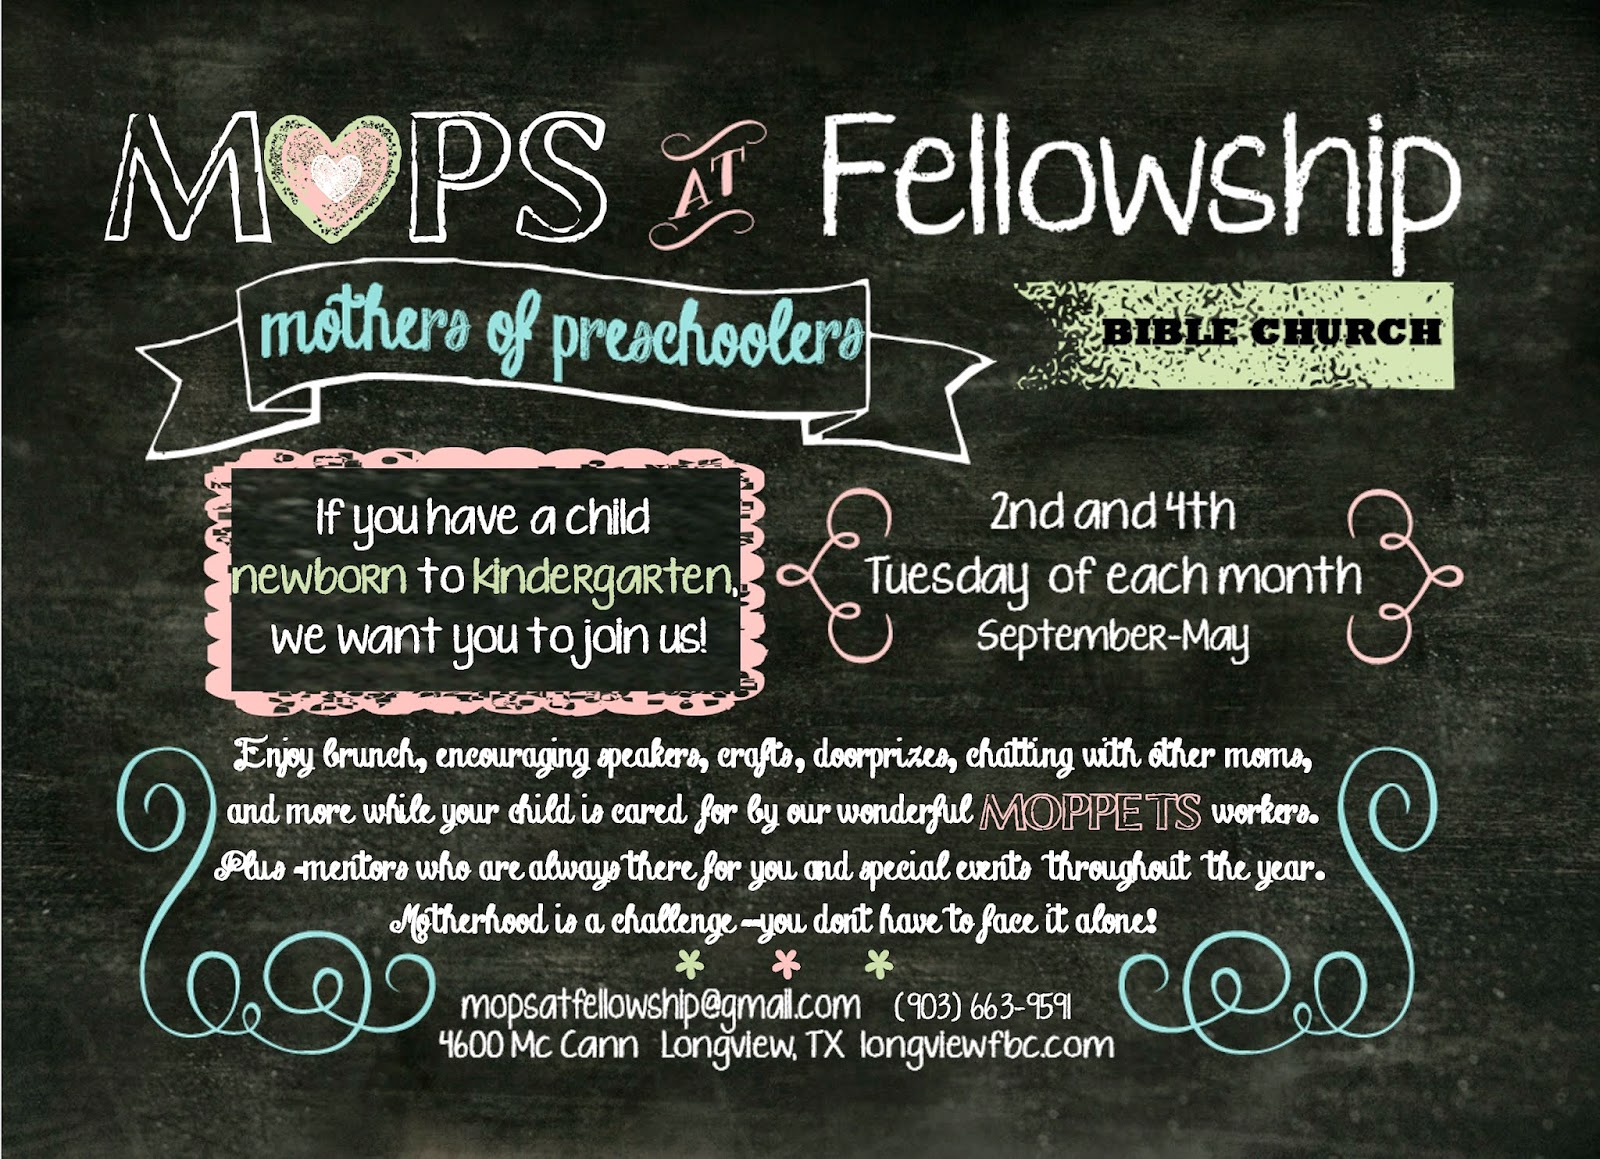 MOPS AT Fellowship
mothers of preschoolers
BIBLE CHURCH
If you have a child
newborn to kindergarten,
we want you to join us!
2nd and 4th
Tuesday of each month
September-May
Enjoy brunch, encouraging speakers, crafts, doorprizes, chatting with other moms,
and more while your child is cared for by our wonderful MOPPETS workers.
Plus -mentors who are always there for you and special events throughout the year.
Motherhood is a challenge -you dont have to face it alone!
mopsatfellowship@gmail.com (903) 663-9591
4600 Mc Cann Longview, TX longviewfbc.com